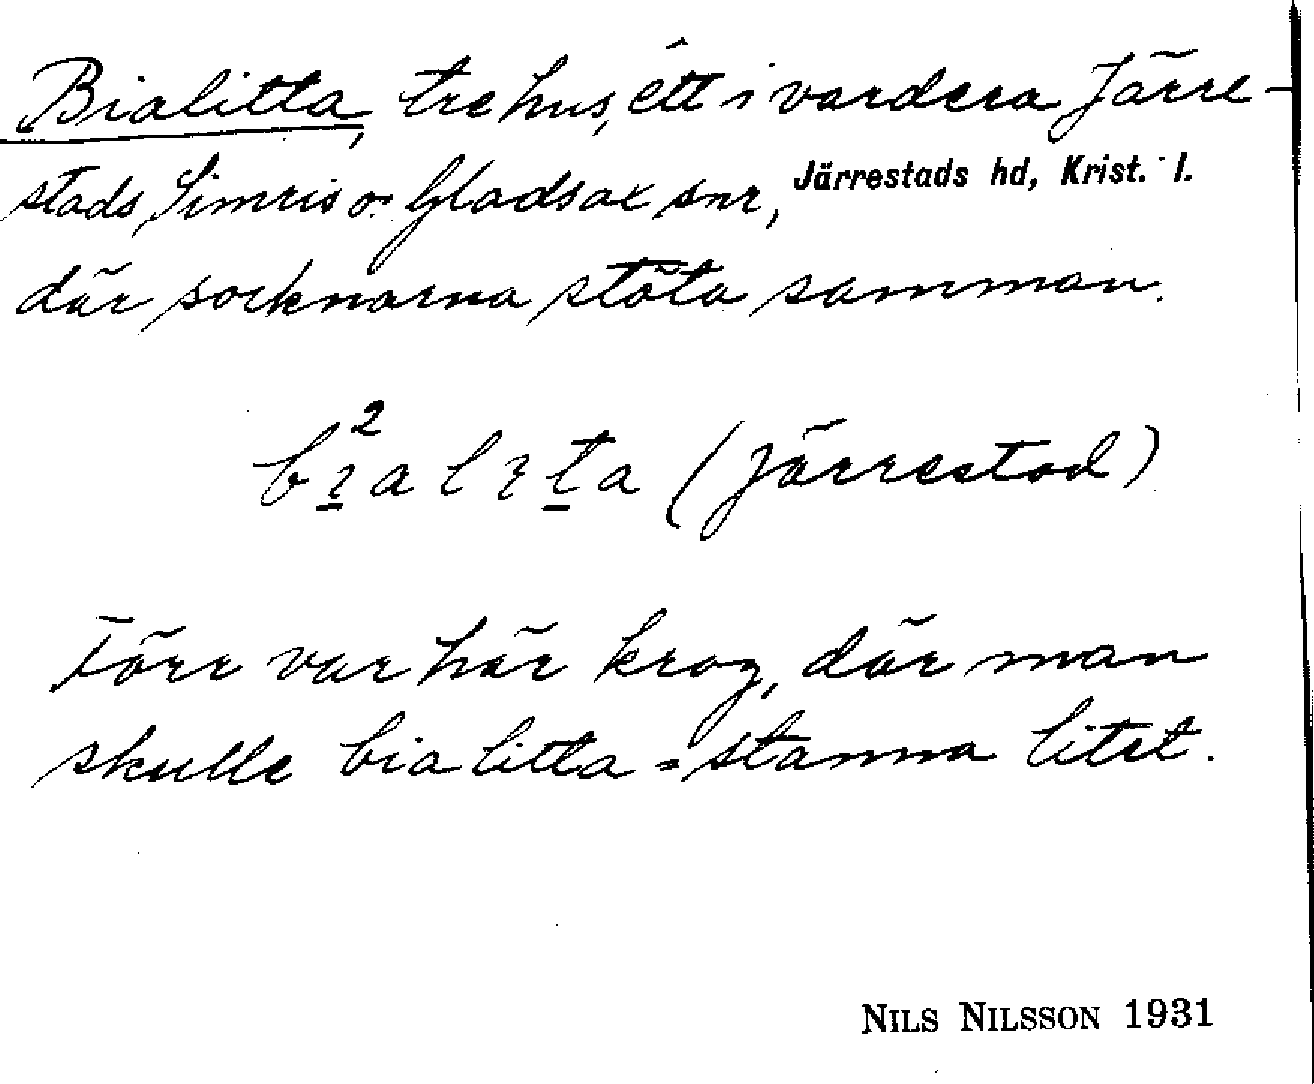 Bialitta, tre hus, ett i vardera Järre-
stads, Simris o. Gladsax snr, Järrestads hd, Krist. l.
där socknarna stöta samman.
(Järrestad)
Förr var här krog, där man
skulle bia litta = stanna litet.
NILS NILSSON 1931